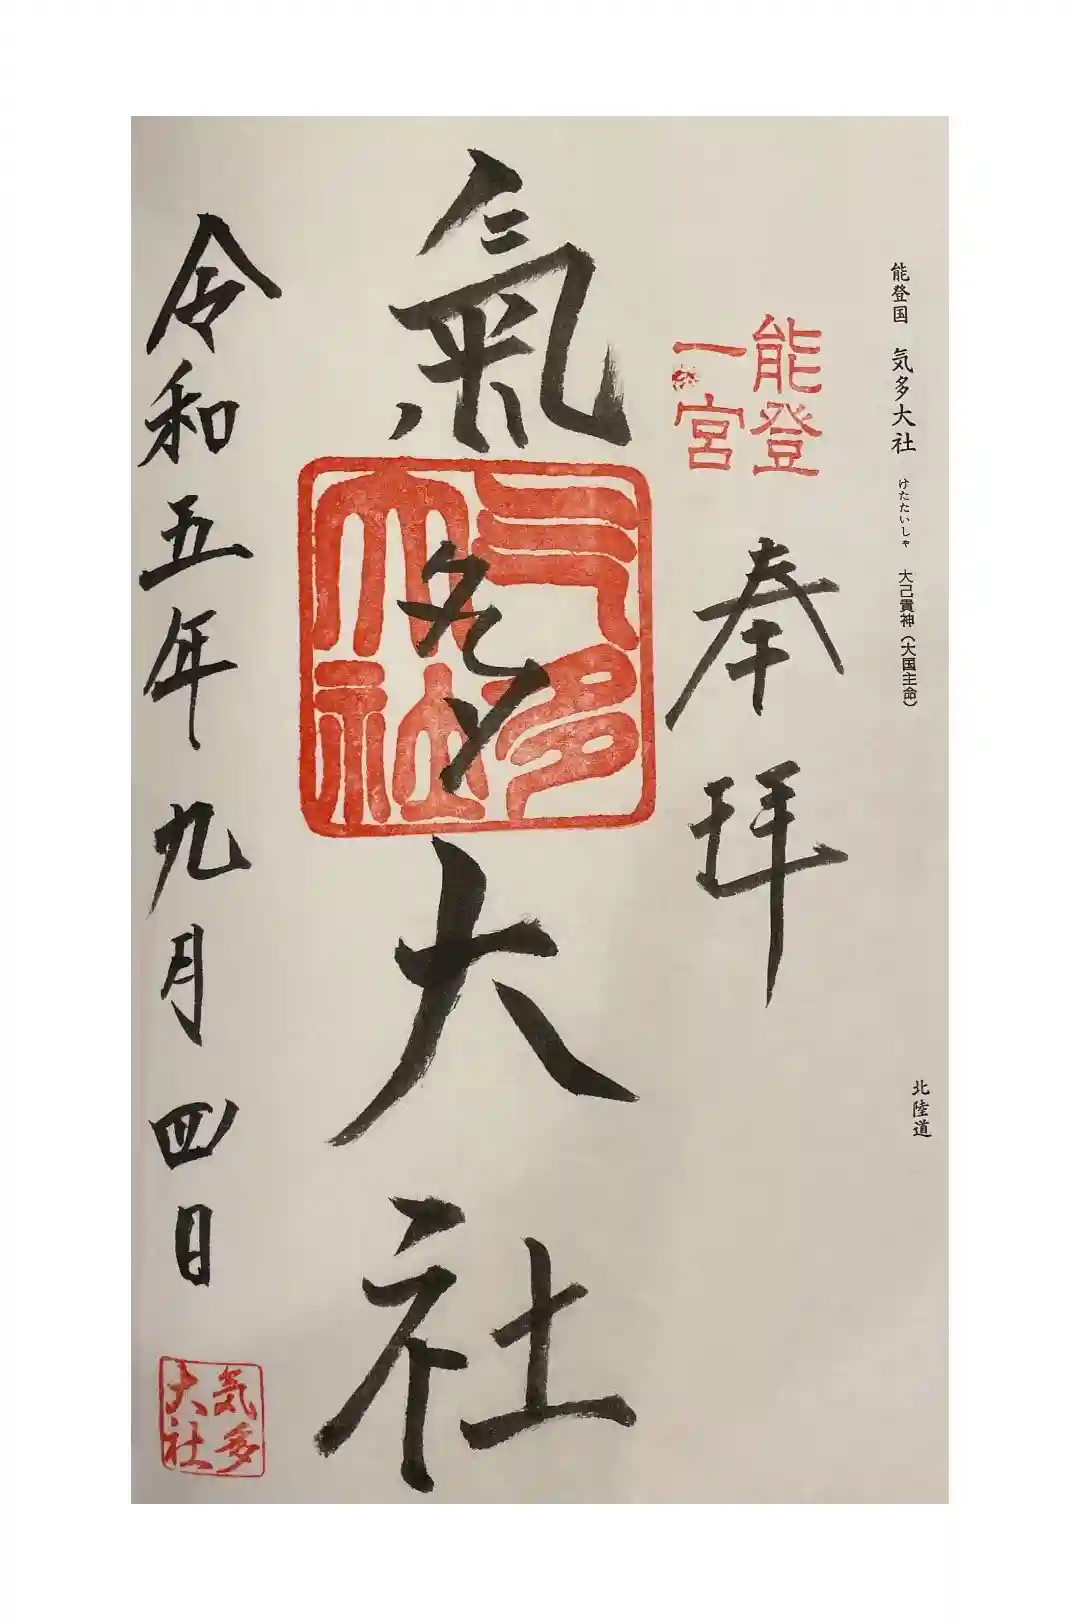 能登国 気多大社 けたたいしゃ 大己貴神(大国主命)
北陸道
能登
一宮
奉拝
氣多大社
気多
大社
令和五年九月四日
気多
大社